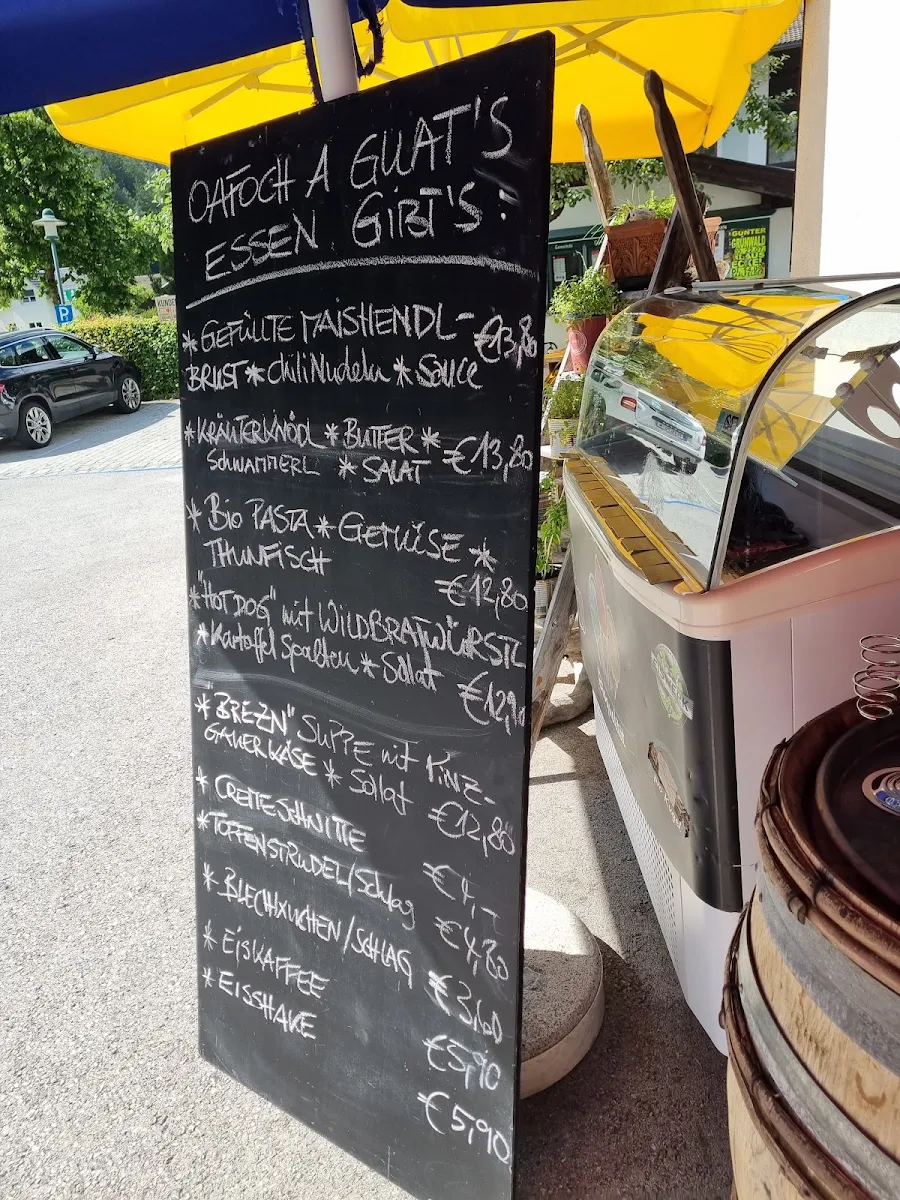 OAFOCH A GUAT'S
ESSEN GIBT'S:
* GEFÜLLTE MAISHENDL-
BRUST * Chili Nudeln * Sauce €13,80
* KRÄUTERKNÖDL * BUTTER *
SCHWAMMERL * SALAT €13,80
* Bio PASTA * GEMÜSE *
THUNFISCH €12,80
* "HOT DOG" mit WILDBRATWÜRSTL
* Kartoffel Spalten * Sallat €12,90
* BREZN" SUPPE mit PINZ-
GAUERKÄSE * Sallat €12,80
* CREMESCHNITTE €4,-
* TOPFENSTRUDEL/Schlag €4,80
* BLECHKUCHEN/SCHLAG €3,60
* EISKAFFEE €5,90
* EISSHAKE €5,90
P
KUNDE
GÜNTER
GRÜNWALD